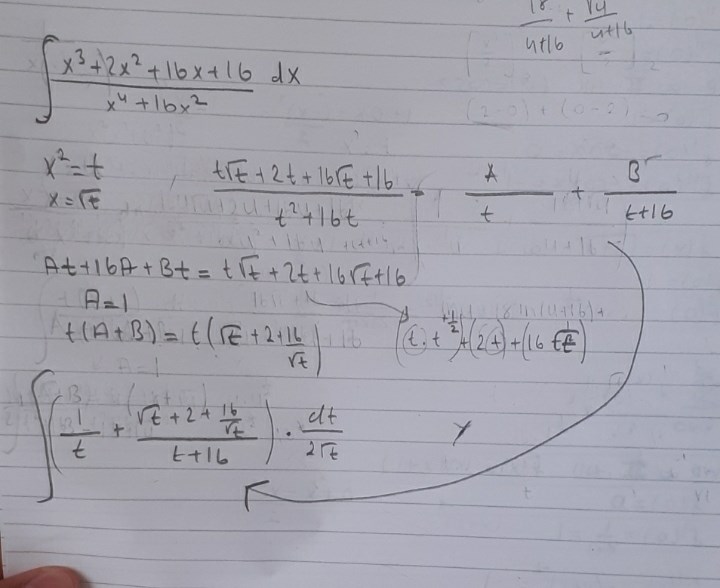 18/(u+16) + /(u+16)
∫ (x³+2x²+16x+16)/(x⁴+16x²) dx
x²=t , (t√t+2t+16√t+16)/(t²+16t) = A/t + B/(t+16)
x=√t
At+16A+Bt = t√t+2t+16√t+16
A=1
t(A+B) = t(√t+2+16/√t) (t·t^(+1/2))+(2t)+(16
∫ (1/t + (√t+2+16/√t)/(t+16)) · dt/(2√t)